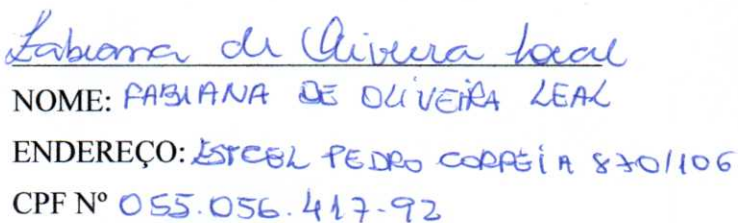 Fabiana de Oliveira Leal
NOME: FABIANA DE OLIVEIRA LEAL
ENDEREÇO: PEDRO CORREIA 870/106
CPF Nº 055.056.417-92